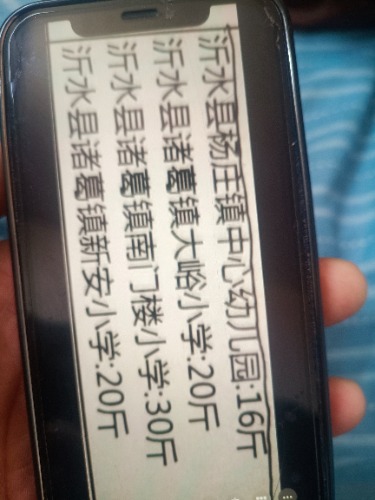 沂水县杨庄镇中心幼儿园:16斤
沂水县诸葛镇大峪小学:20斤
沂水县诸葛镇南门楼小学:30斤
沂水县诸葛镇新安小学:20斤